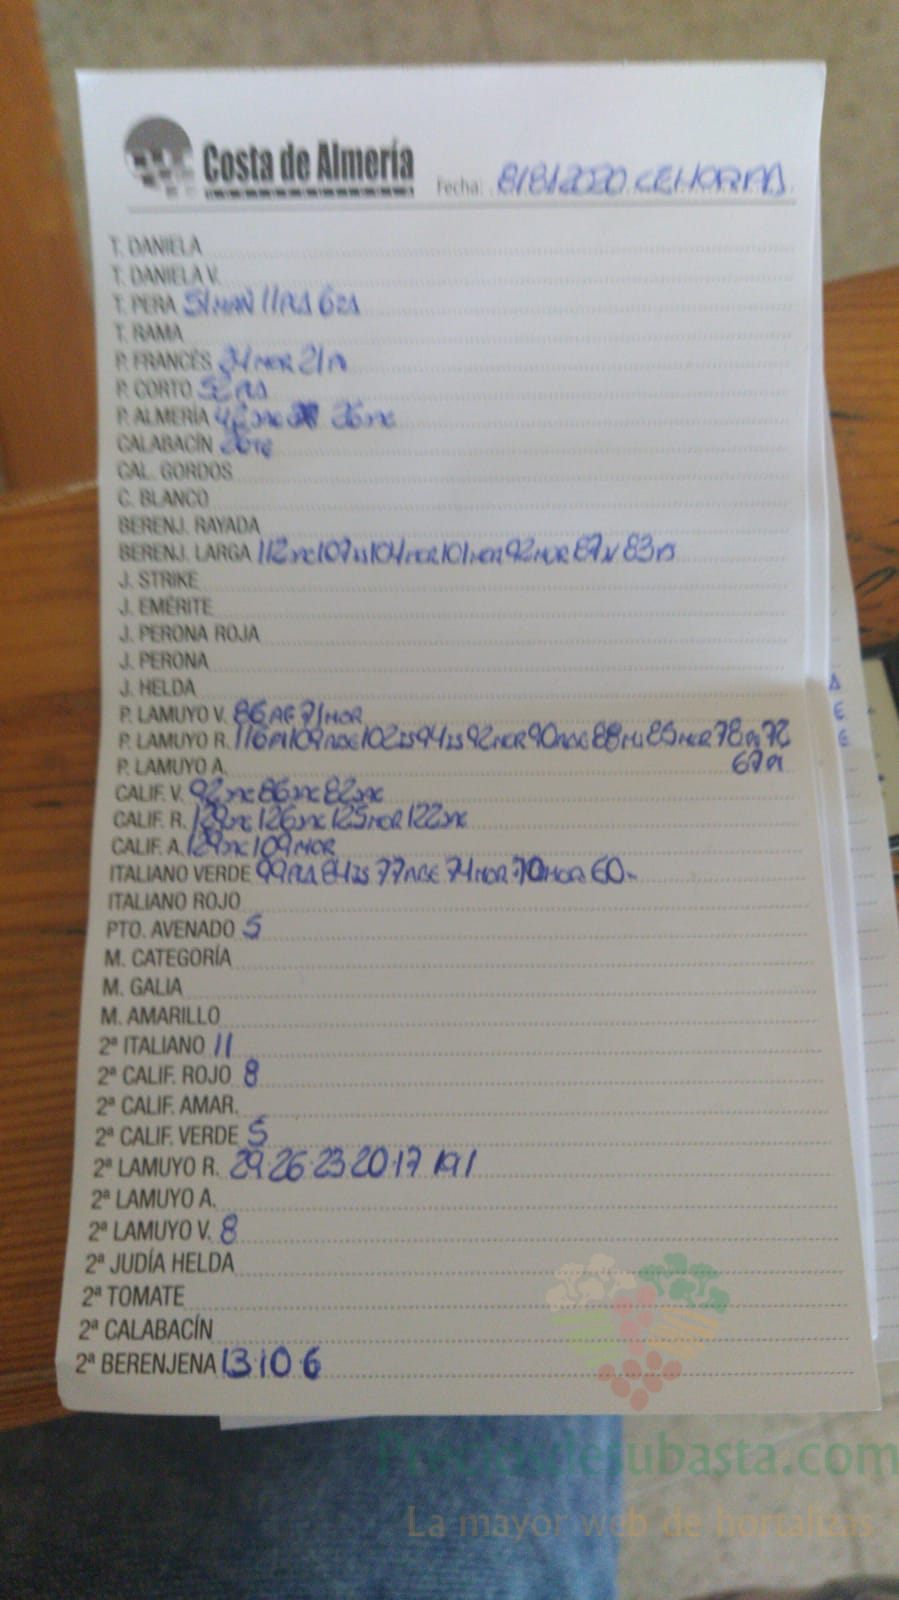 Costa de Almería
Fecha: 8/8/2020 CEHORPA
T. DANIELA
T. DANIELA V.
T. PERA 51 11 62
T. RAMA
P. FRANCÉS 34 MOR 21
P. CORTO 52
P. ALMERÍA 42 36
CALABACÍN
CAL. GORDOS
C. BLANCO
BERENJ. RAYADA
BERENJ. LARGA 112 107 104 MOR 101 MOR 92 MOR 87 83
J. STRIKE
J. EMÉRITE
J. PERONA ROJA
J. PERONA
J. HELDA
P. LAMUYO V. 86 71 MOR
P. LAMUYO R. 116 109 102 94 92 MOR 90 88 85 MOR 78
P. LAMUYO A. 67
CALIF. V. 92 86 82
CALIF. R. 129 126 125 MOR 122
CALIF. A. 129 109 MOR
ITALIANO VERDE 99 84 77 74 MOR 70 MOR 60
ITALIANO ROJO
PTO. AVENADO 5
M. CATEGORÍA
M. GALIA
M. AMARILLO
2ª ITALIANO 11
2ª CALIF. ROJO 8
2ª CALIF. AMAR.
2ª CALIF. VERDE 5
2ª LAMUYO R. 29 26 23 20 17
2ª LAMUYO A.
2ª LAMUYO V. 8
2ª JUDÍA HELDA
2ª TOMATE
2ª CALABACÍN
2ª BERENJENA 13 10 6
Preciosdesubasta.com
La mayor web de hortalizas